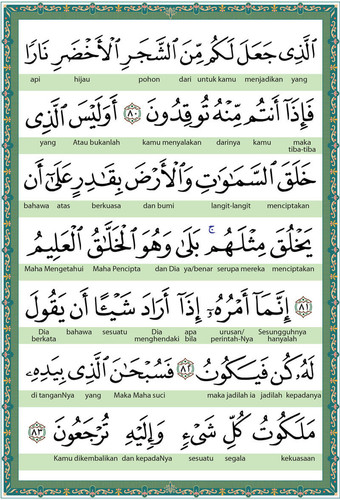 ٱلَّذِى جَعَلَ لَكُم مِّنَ ٱلشَّجَرِ ٱلْأَخْضَرِ نَارًا
api hijau pohon dari untuk kamu menjadikan yang
فَإِذَآ أَنتُم مِّنْهُ تُوقِدُونَ ٨٠ أَوَلَيْسَ ٱلَّذِى
yang Atau bukanlah kamu menyalakan darinya kamu maka tiba-tiba
خَلَقَ ٱلسَّمَـٰوَٰتِ وَٱلْأَرْضَ بِقَـٰدِرٍ عَلَىٰٓ أَن
bahawa atas berkuasa dan bumi langit-langit menciptakan
يَخْلُقَ مِثْلَهُم ۚ بَلَىٰ وَهُوَ ٱلْخَلَّـٰقُ ٱلْعَلِيمُ
Maha Mengetahui Maha Pencipta dan Dia ya/benar serupa mereka menciptakan
٨١ إِنَّمَآ أَمْرُهُۥٓ إِذَآ أَرَادَ شَيْـًٔا أَن يَقُولَ
Dia berkata bahawa sesuatu Dia menghendaki apa bila urusan/ perintah-Nya Sesungguhnya hanyalah
لَهُۥ كُن فَيَكُونُ ٨٢ فَسُبْحَـٰنَ ٱلَّذِى بِيَدِهِۦ
di tanganNya yang Maka Maha suci maka jadilah ia jadilah kepadanya
مَلَكُوتُ كُلِّ شَىْءٍ وَإِلَيْهِ تُرْجَعُونَ ٨٣
Kamu dikembalikan dan kepadaNya sesuatu segala kekuasaan